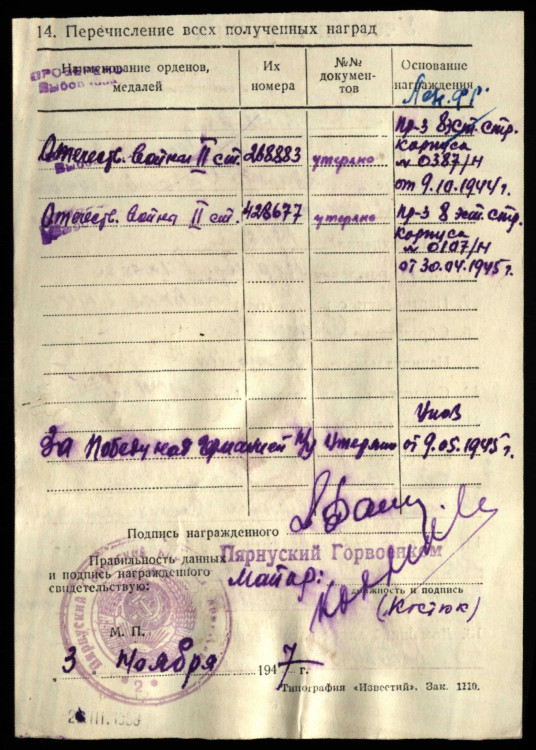 14. Перечисление всех полученных наград
Наименование орденов, медалей
Их номера
№№ докумен-
тов
Основание награждения
Лен. фр.
Отечеств. война II ст. 268883 утеряно Пр-з 8 эст. стр.
корпуса
№ 0387/н
от 9.10.1944 г.
Отечеств. война II ст. 428677 утеряно Пр-з 8 эст. стр.
корпуса
№ 0107/н
от 30.04.1945 г.
Указ
За Победу над Германией б/н Утеряно от 9.05.1945 г.
Подпись награжденного
Правильность данных
и подпись награжденного
свидетельствую:
Пярнуский Горвоенком
Майор:
должность и подпись
(Костюк)
М. П.
3 Ноября 1947 г.
Типография «Известий». Зак. 1210.